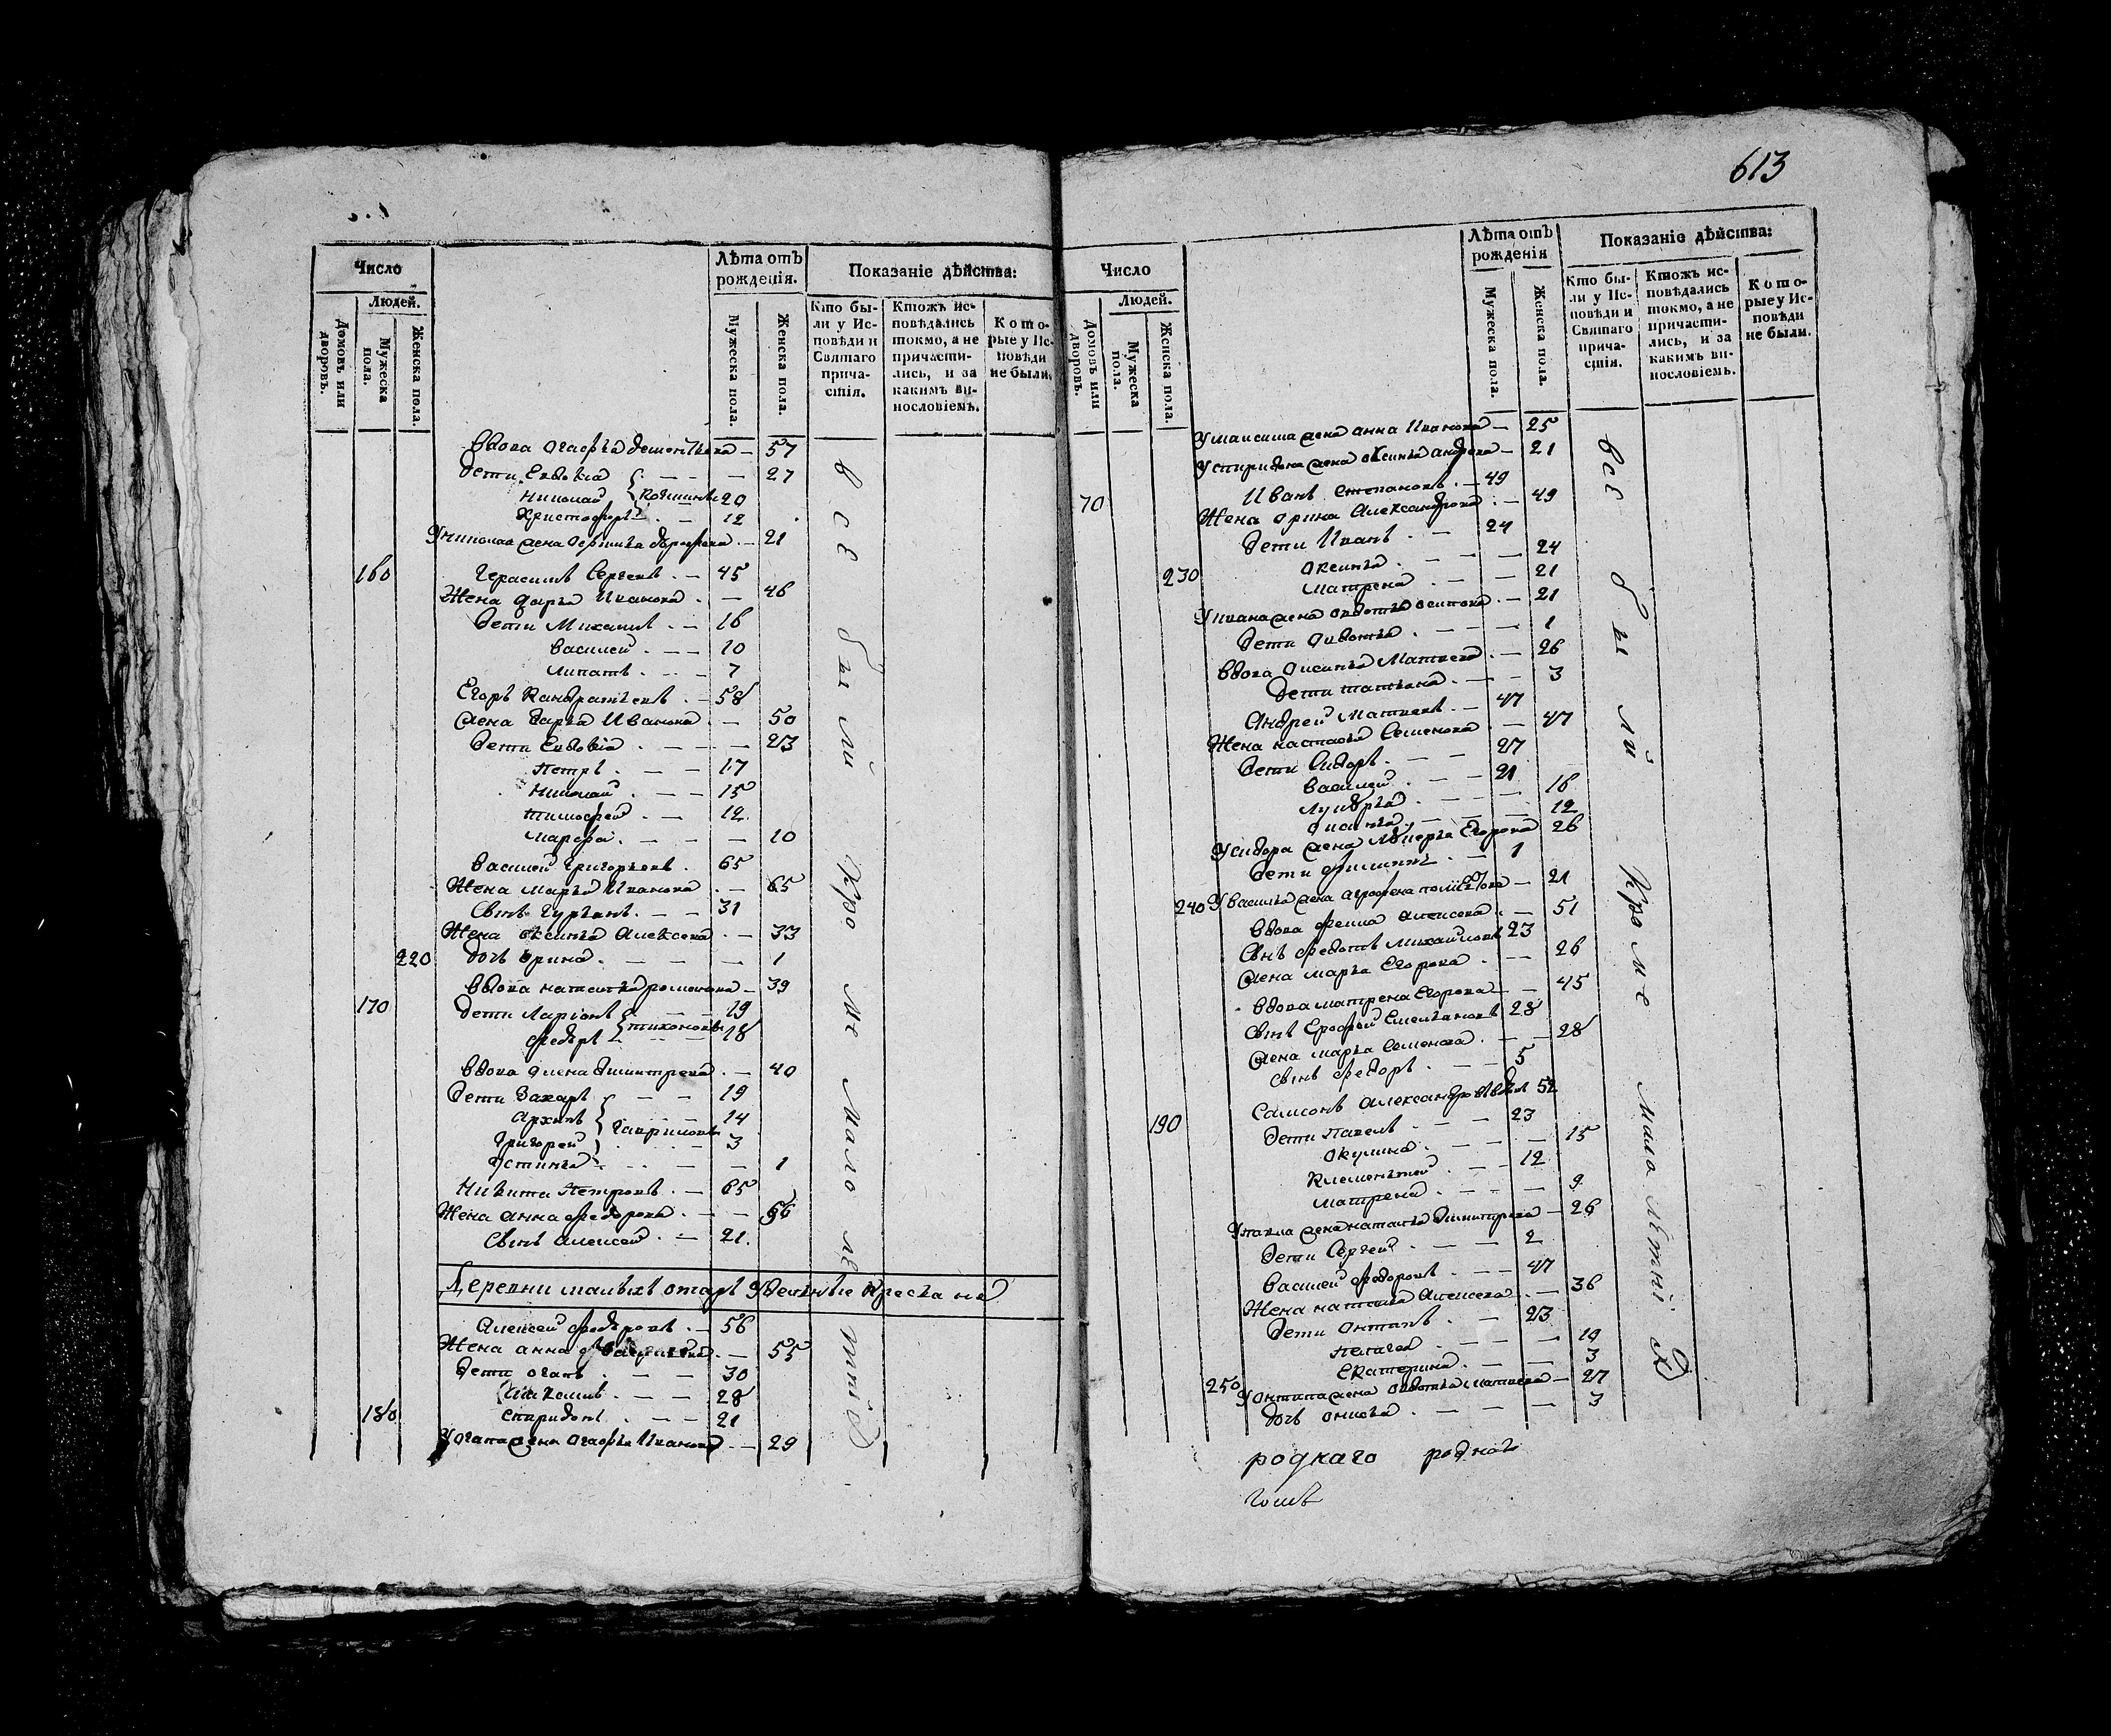 613
Число
Людей.
Домовъ или дворовъ.
Мужеска пола.
Женска пола.
Лѣта отъ рожденія.
Мужеска пола.
Женска пола.
Показаніе дѣйства:
Кто были у Исповѣди и Святаго причастія.
Ктожъ исповѣдались токмо, а не причастились, и за какимъ винословіемъ.
Которые у Исповѣди не были.
Вдова Огафья Дементьева — 57
дети Евдокіа — 27
Николай 20
Христофоръ — 12
У николая жена 21
160 Герасимъ Сергеевъ — 45
Жена дарья Иванова — 46
дети Михаилъ — 16
василей — 10
липатъ — 7
Егоръ Кандратьевъ — 58
жена дарья Иванова — 50
дети Евдокіа — 23
петръ — 17
Николай — 15
тимофей — 12
марфа — 10
василей григорьевъ 65
Жена марья Иванова — 65
Сынъ 31
Жена оксинья Алексеева — 33
220 дочь орина — 1
вдова наталья романова — 39
170 дети Ларіонъ — 19
федоръ тихоновы 18
вдова Дмитрева — 40
дети Захаръ — 19
архипъ 14
григорей гавриловы 3
устинья — 1
Никита Петровъ — 65
Жена анна федорова — 56
Сынъ алексей — 21
Алексей федоровъ — 56
Жена анна — 55
дети огапъ — 30
Максимъ — 28
180 спиридонъ — 21
У огапа жена огафья Иванова — 29
все были кроме мало летні
Число
Людей.
Домовъ или дворовъ.
Мужеска пола.
Женска пола.
Лѣта отъ рожденія
Мужеска пола.
Женска пола.
Показаніе дѣйства:
Кто были у Исповѣди и Святаго причастія.
Ктожъ исповѣдались токмо, а не причастились, и за какимъ винословіемъ.
Которые у Исповѣди не были.
У максима жена анна Иванова — 25
У спиридона жена оксинья андреева — 21
70 Иванъ Степановъ — 49
Жена орина Александрова — 49
дети Иванъ — 24
оксинья — 24
230 матрена — 21
У ивана жена овдотья осипова — 21
дети овдотья — 1
вдова Матвеева — 26
дети татьяна — 3
Андрей Матвеевъ — 47
Жена настасья Семенова — 47
дети Сидоръ — 27
василей — 21
лукерья — 16
12
У сидора жена Егорова 26
дети филипъ — 1
240 У василья жена 21
вдова алексеева — 51
Сынъ федотъ михайловъ 23
жена марья Егорова — 26
вдова матрена Егорова — 45
Сынъ Ерофей Емельяновъ 28
жена марья Семенова — 28
Сынъ федоръ — 5
Самсонъ Александровъ вдовъ 52
190 дети павелъ — 23
окулина — 15
Клементей — 12
матрена — 9
У павла жена наталья Дмитрева — 26
дети Сергей — 2
василей федоровъ — 47
Жена наталья алексеева — 36
дети онтипъ — 23
пелагея — 19
Екатерина — 3
250 У онтипа жена овдотья матвеева — 27
дочь онисья — 3
все были кроме мало летні